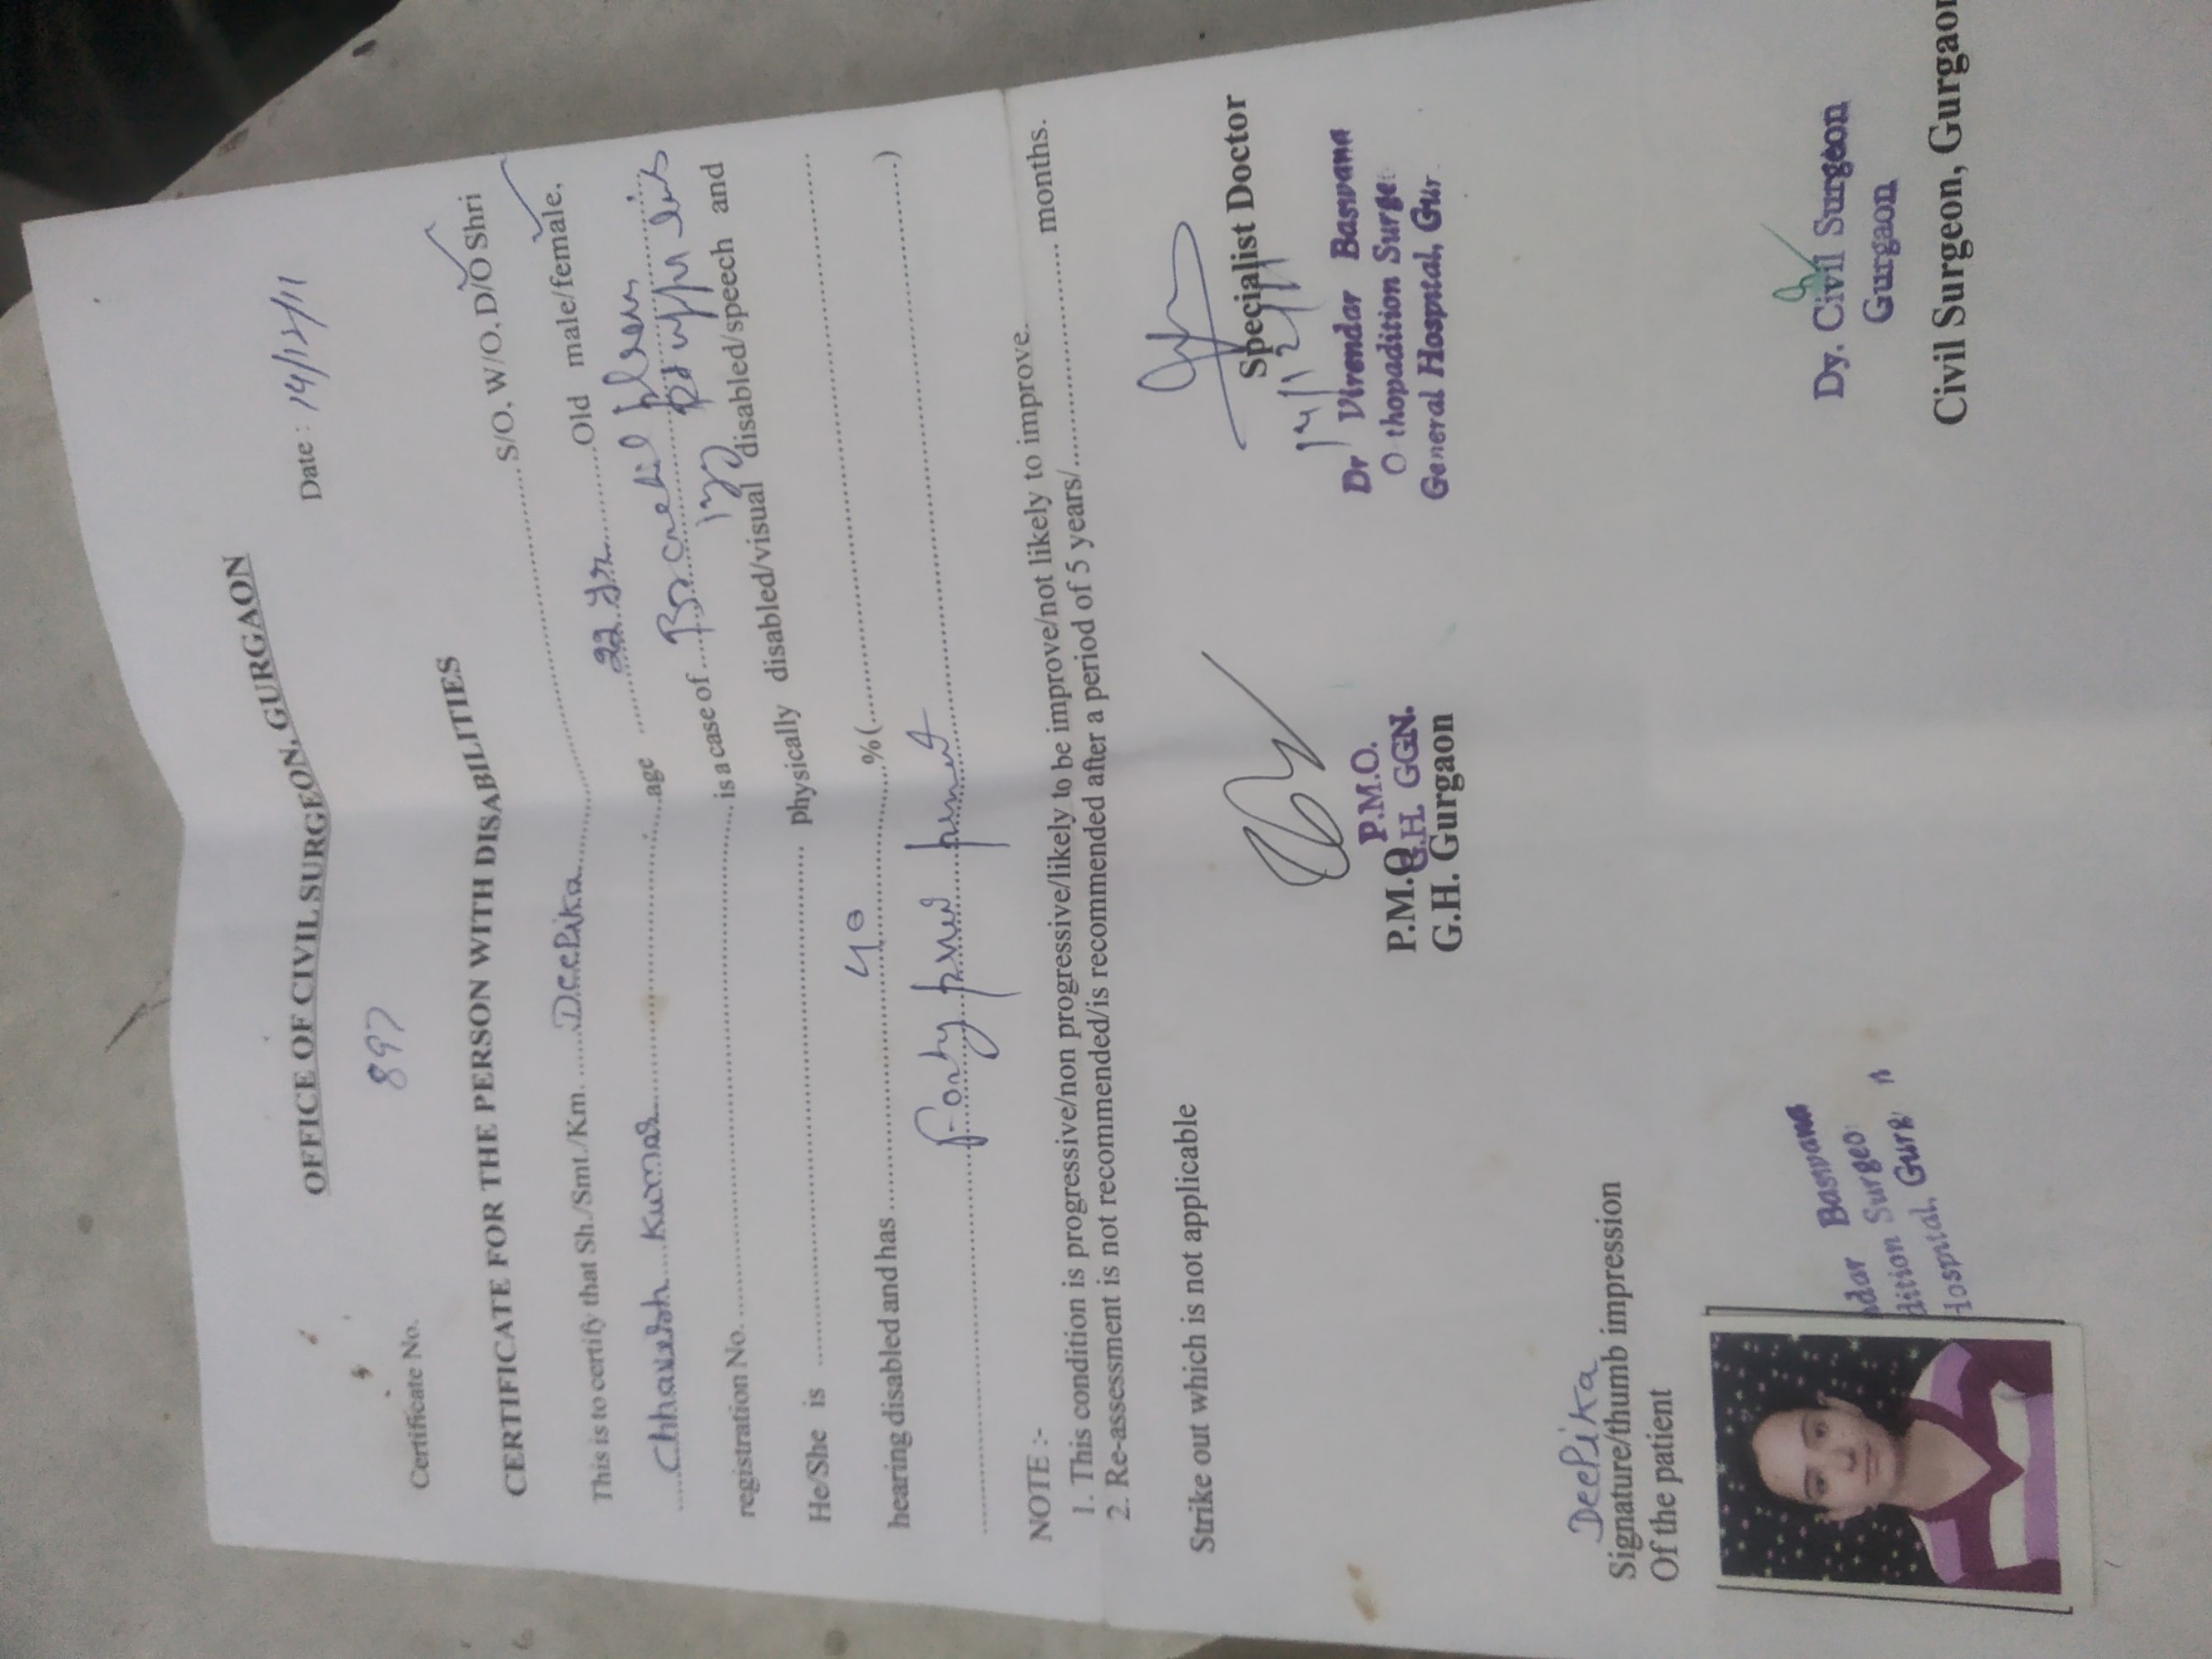 OFFICE OF CIVIL SURGEON, GURGAON
Certificate No. 897 Date : 14/12/11
CERTIFICATE FOR THE PERSON WITH DISABILITIES
This is to certify that Sh./Smt./Km. ....Deepika.... S/O, W/O, D/O Shri
....Chhavesh Kumar....age ....22 yr....Old male/female,
registration No.....is a case of ....Brachial plexus
Rt upper limb
He/She is .... physically disabled/visual disabled/speech and
hearing disabled and has....40....%(....)
Forty percent permanent
NOTE :-
1. This condition is progressive/non progressive/likely to be improve/not likely to improve.
2. Re-assessment is not recommended/is recommended after a period of 5 years/.... months.
Strike out which is not applicable
Specialist Doctor
14/12/11
Dr Virendar Baswana
O thopadition Surge
General Hospital, Gur
P.M.O.
G.H. GGN.
P.M.O
G.H. Gurgaon
Deepika
Signature/thumb impression
Of the patient
Dy. Civil Surgeon
Gurgaon
Civil Surgeon, Gurgaon
ndar Baswana
dition Surgeo
Hospital, Gurg n